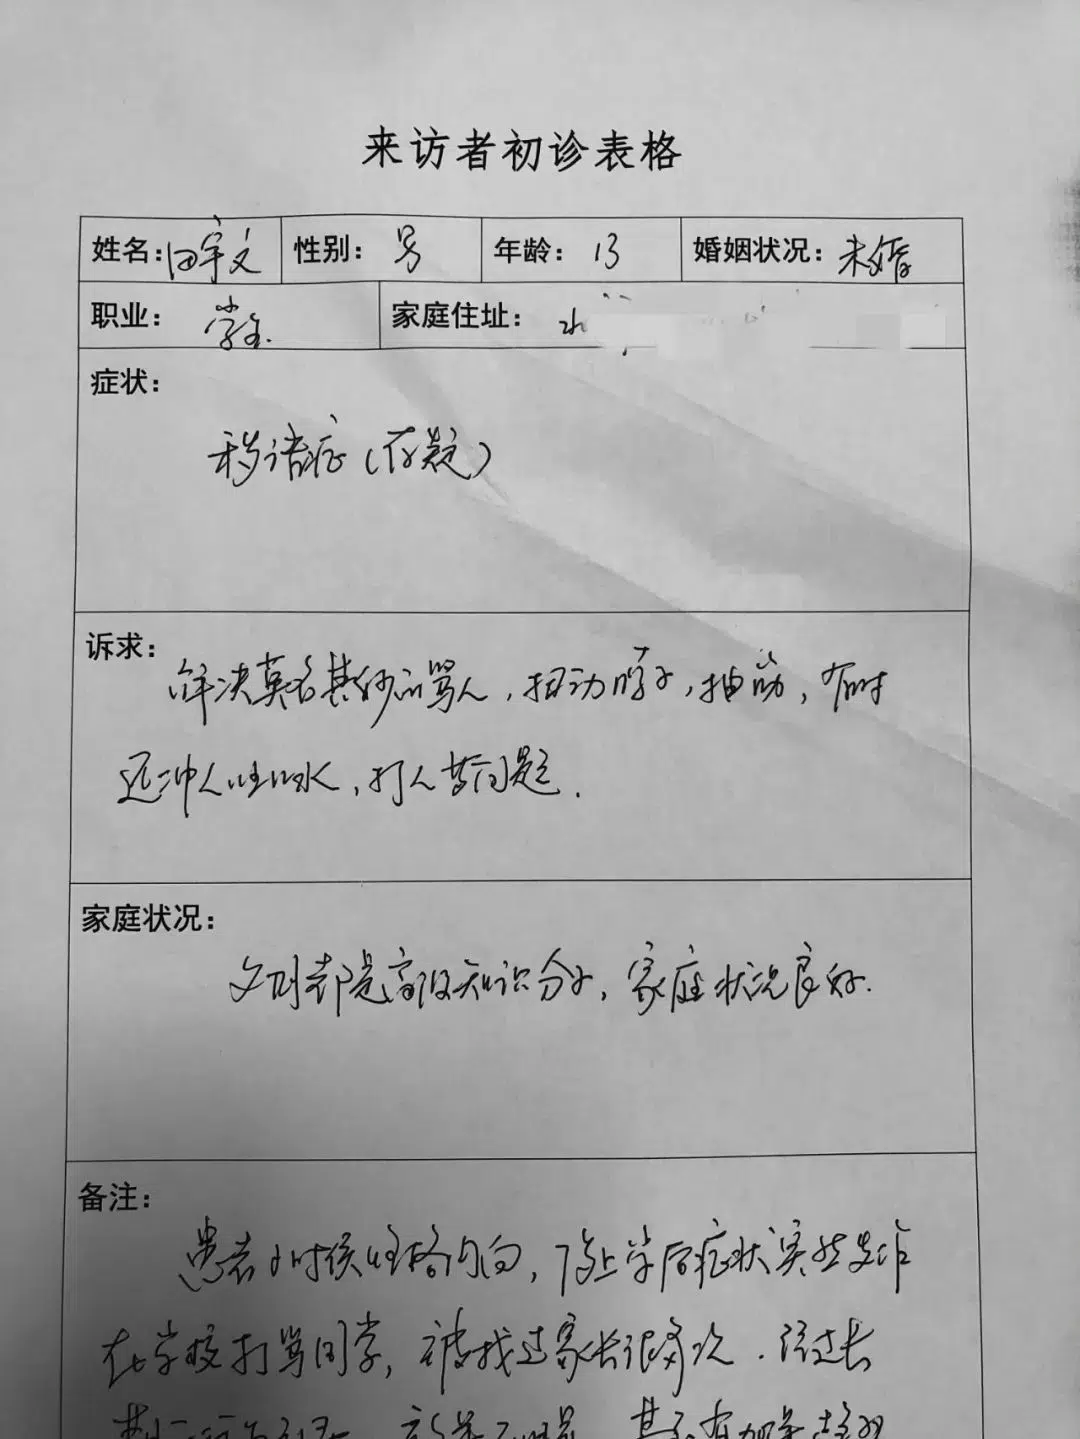 来访者初诊表格
姓名：田宇文 性别：男 年龄：13 婚姻状况：未婚
职业：学生 家庭住址：
症状：
秽语症（存疑）
诉求：
解决莫名其妙的骂人，扭动脖子，抽筋，有时
还冲人吐口水，打人等问题．
家庭状况：
父母都是高级知识分子，家庭状况良好．
备注：
患者小时候性格内向，上学后症状突然发作
在学校打骂同学，被找过家长很多次．经过长
期行为 效果不明显，甚至有加重